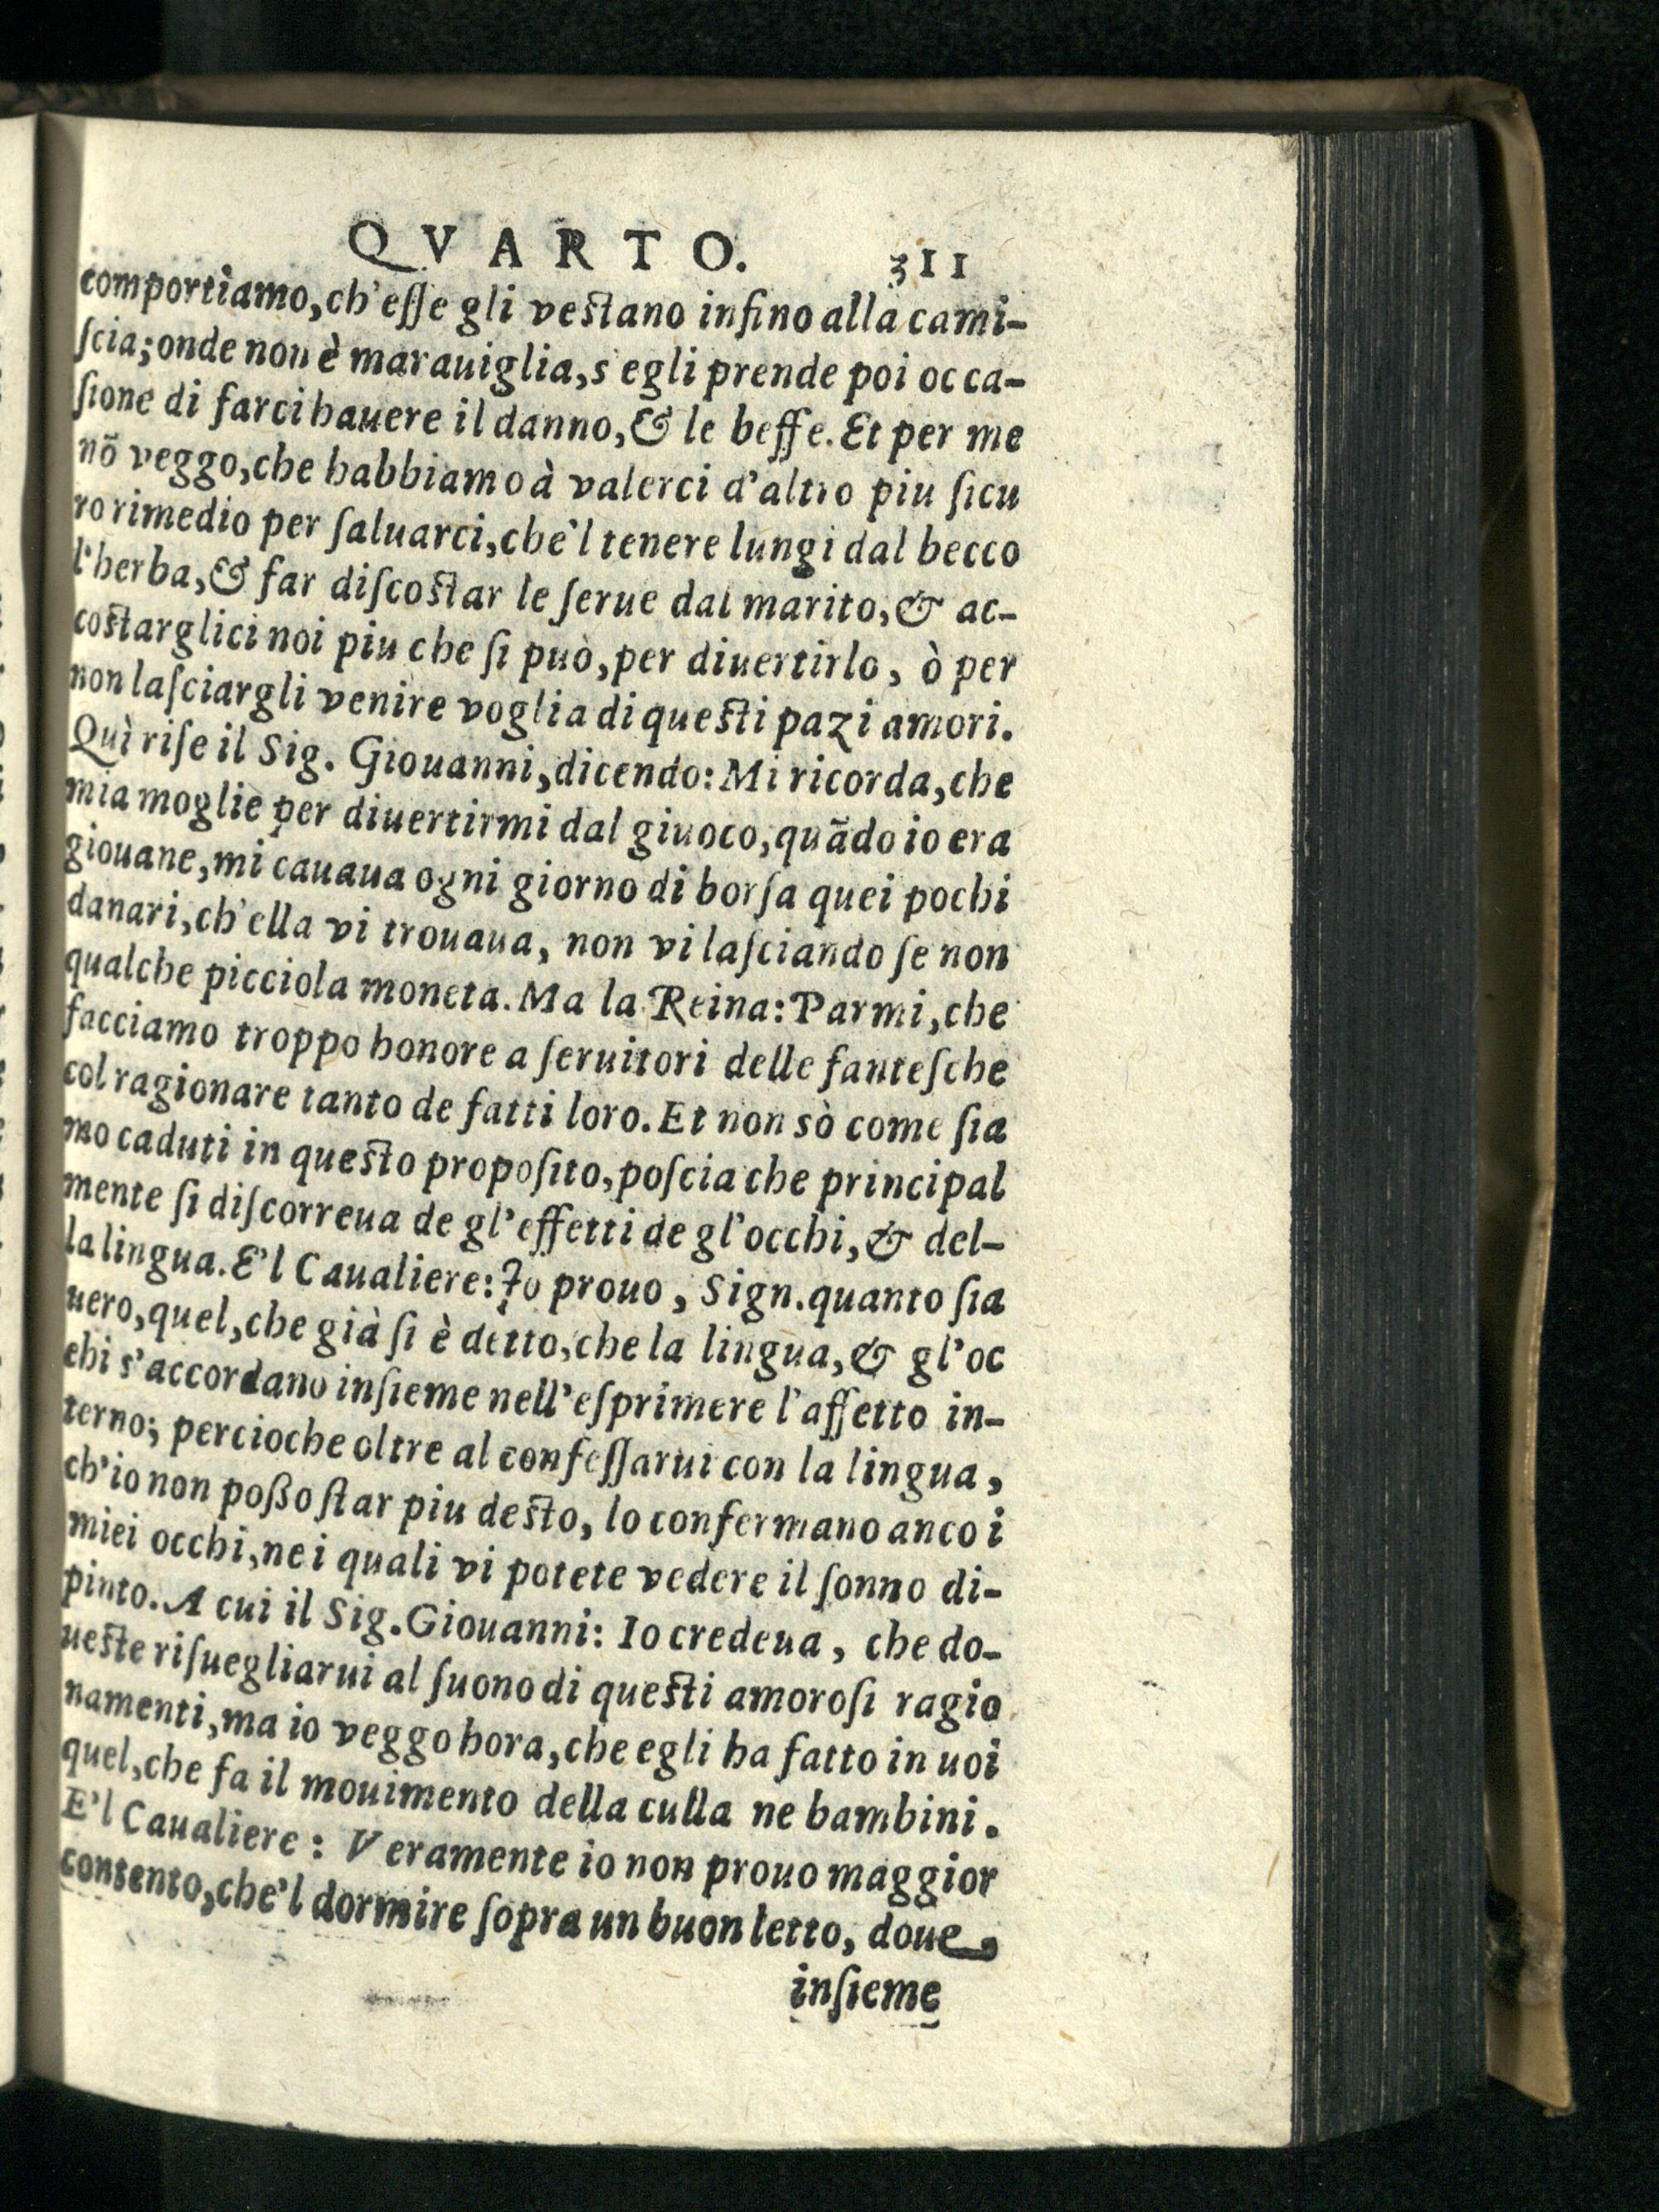 QVARTO. 311
comportiamo,ch'eſſe gli veſtano infino alla cami-
ſcia;onde non è marauiglia,s'egli prende poi occa-
ſione di farci hauere il danno,& le beffe. Et per me
nõ veggo,che habbiamo à valerci d'altro piu ſicu
ro rimedio per ſaluarci,che'l tenere lungi dal becco
l'herba,& far diſcoſtar le ſerue dal marito,& ac-
coſtarglici noi piu che ſi può,per diuertirlo, ò per
non laſciargli venire voglia di queſti pazi amori.
Quì riſe il Sig. Giouanni,dicendo: Mi ricorda,che
mia moglie per diuertirmi dal giuoco,quãdo io era
giouane,mi cauaua ogni giorno di borſa quei pochi
danari,ch'ella vi trouaua, non vi laſciando ſe non
qualche picciola moneta. Ma la Reina: Parmi,che
facciamo troppo honore a ſeruitori delle fanteſche
col ragionare tanto de fatti loro. Et non sò come ſia
mo caduti in queſto propoſito,poſcia che principal
mente ſi diſcorreua de gl'effetti de gl'occhi,& del-
la lingua. E'l Caualiere: Io prouo, Sign. quanto ſia
uero,quel,che già ſi è detto,che la lingua,& gl'oc
chi s'accordano inſieme nell'eſprimere l'affetto in-
terno; percioche oltre al confeſſarui con la lingua,
ch'io non poßo ſtar piu deſto, lo confermano anco i
miei occhi,ne i quali vi potete vedere il ſonno di-
pinto. A cui il Sig. Giouanni: Io credeua, che do-
ueſte riſuegliarui al ſuono di queſti amoroſi ragio
namenti,ma io veggo hora,che egli ha fatto in uoi
quel,che fa il mouimento della culla ne bambini.
E'l Caualiere: Veramente io non prouo maggior
contento,che'l dormire ſopra un buon letto, doue
inſieme